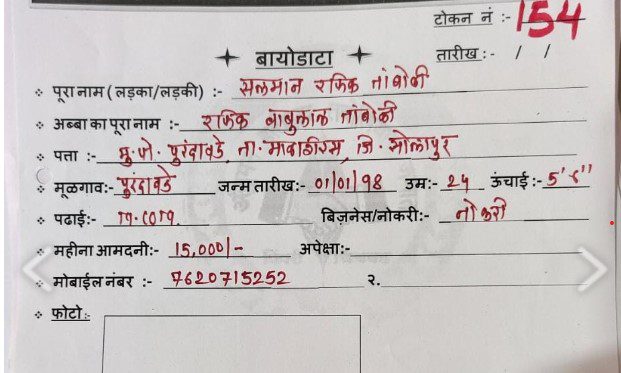 टोकन नं :- 154
बायोडाटा तारीख :- / /
पूरा नाम ( लड़का/लड़की ) :- सलमान रफिक तांबोळी
अब्बा का पूरा नाम :- रफिक बाबुलाल तांबोळी
पत्ता :- मु.पो. पुरंदावडे, ता. माळशिरस, जि. सोलापूर
मूळगाव:- पुरंदावडे जन्म तारीख:- 01/01/98 उम्र:- 24 ऊंचाई :- 5'
पढाई:- बिज़नेस/नोकरी:- नोकरी
महीना आमदनी:- 15,000/- अपेक्षा:-
मोबाईल नंबर :- 7620715252 २.
फोटो :-